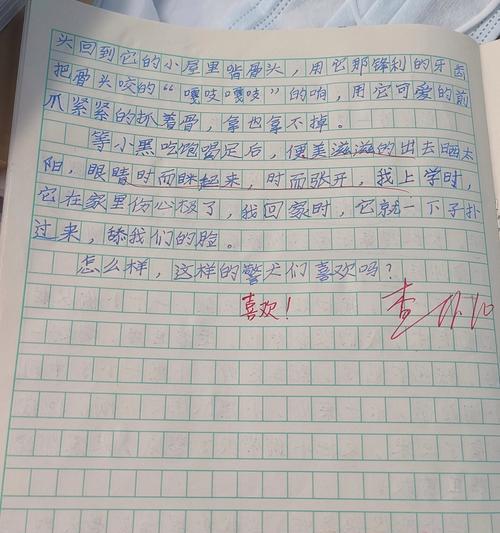 头回到它的小屋里啃骨头，用它那锋利的牙齿
把骨头咬的“嘎吱嘎吱”的响，用它可爱的前
爪紧紧的抓着骨，拿也拿不掉。
等小黑吃饱喝足后，便美滋滋的出去晒太
阳，眼睛时而眯起来，时而张开，我上学时，
它在家里伤心极了，我回家时，它就一下子扑
过来，舔我们的脸。
怎么样，这样的警犬们喜欢吗？
喜欢！
查